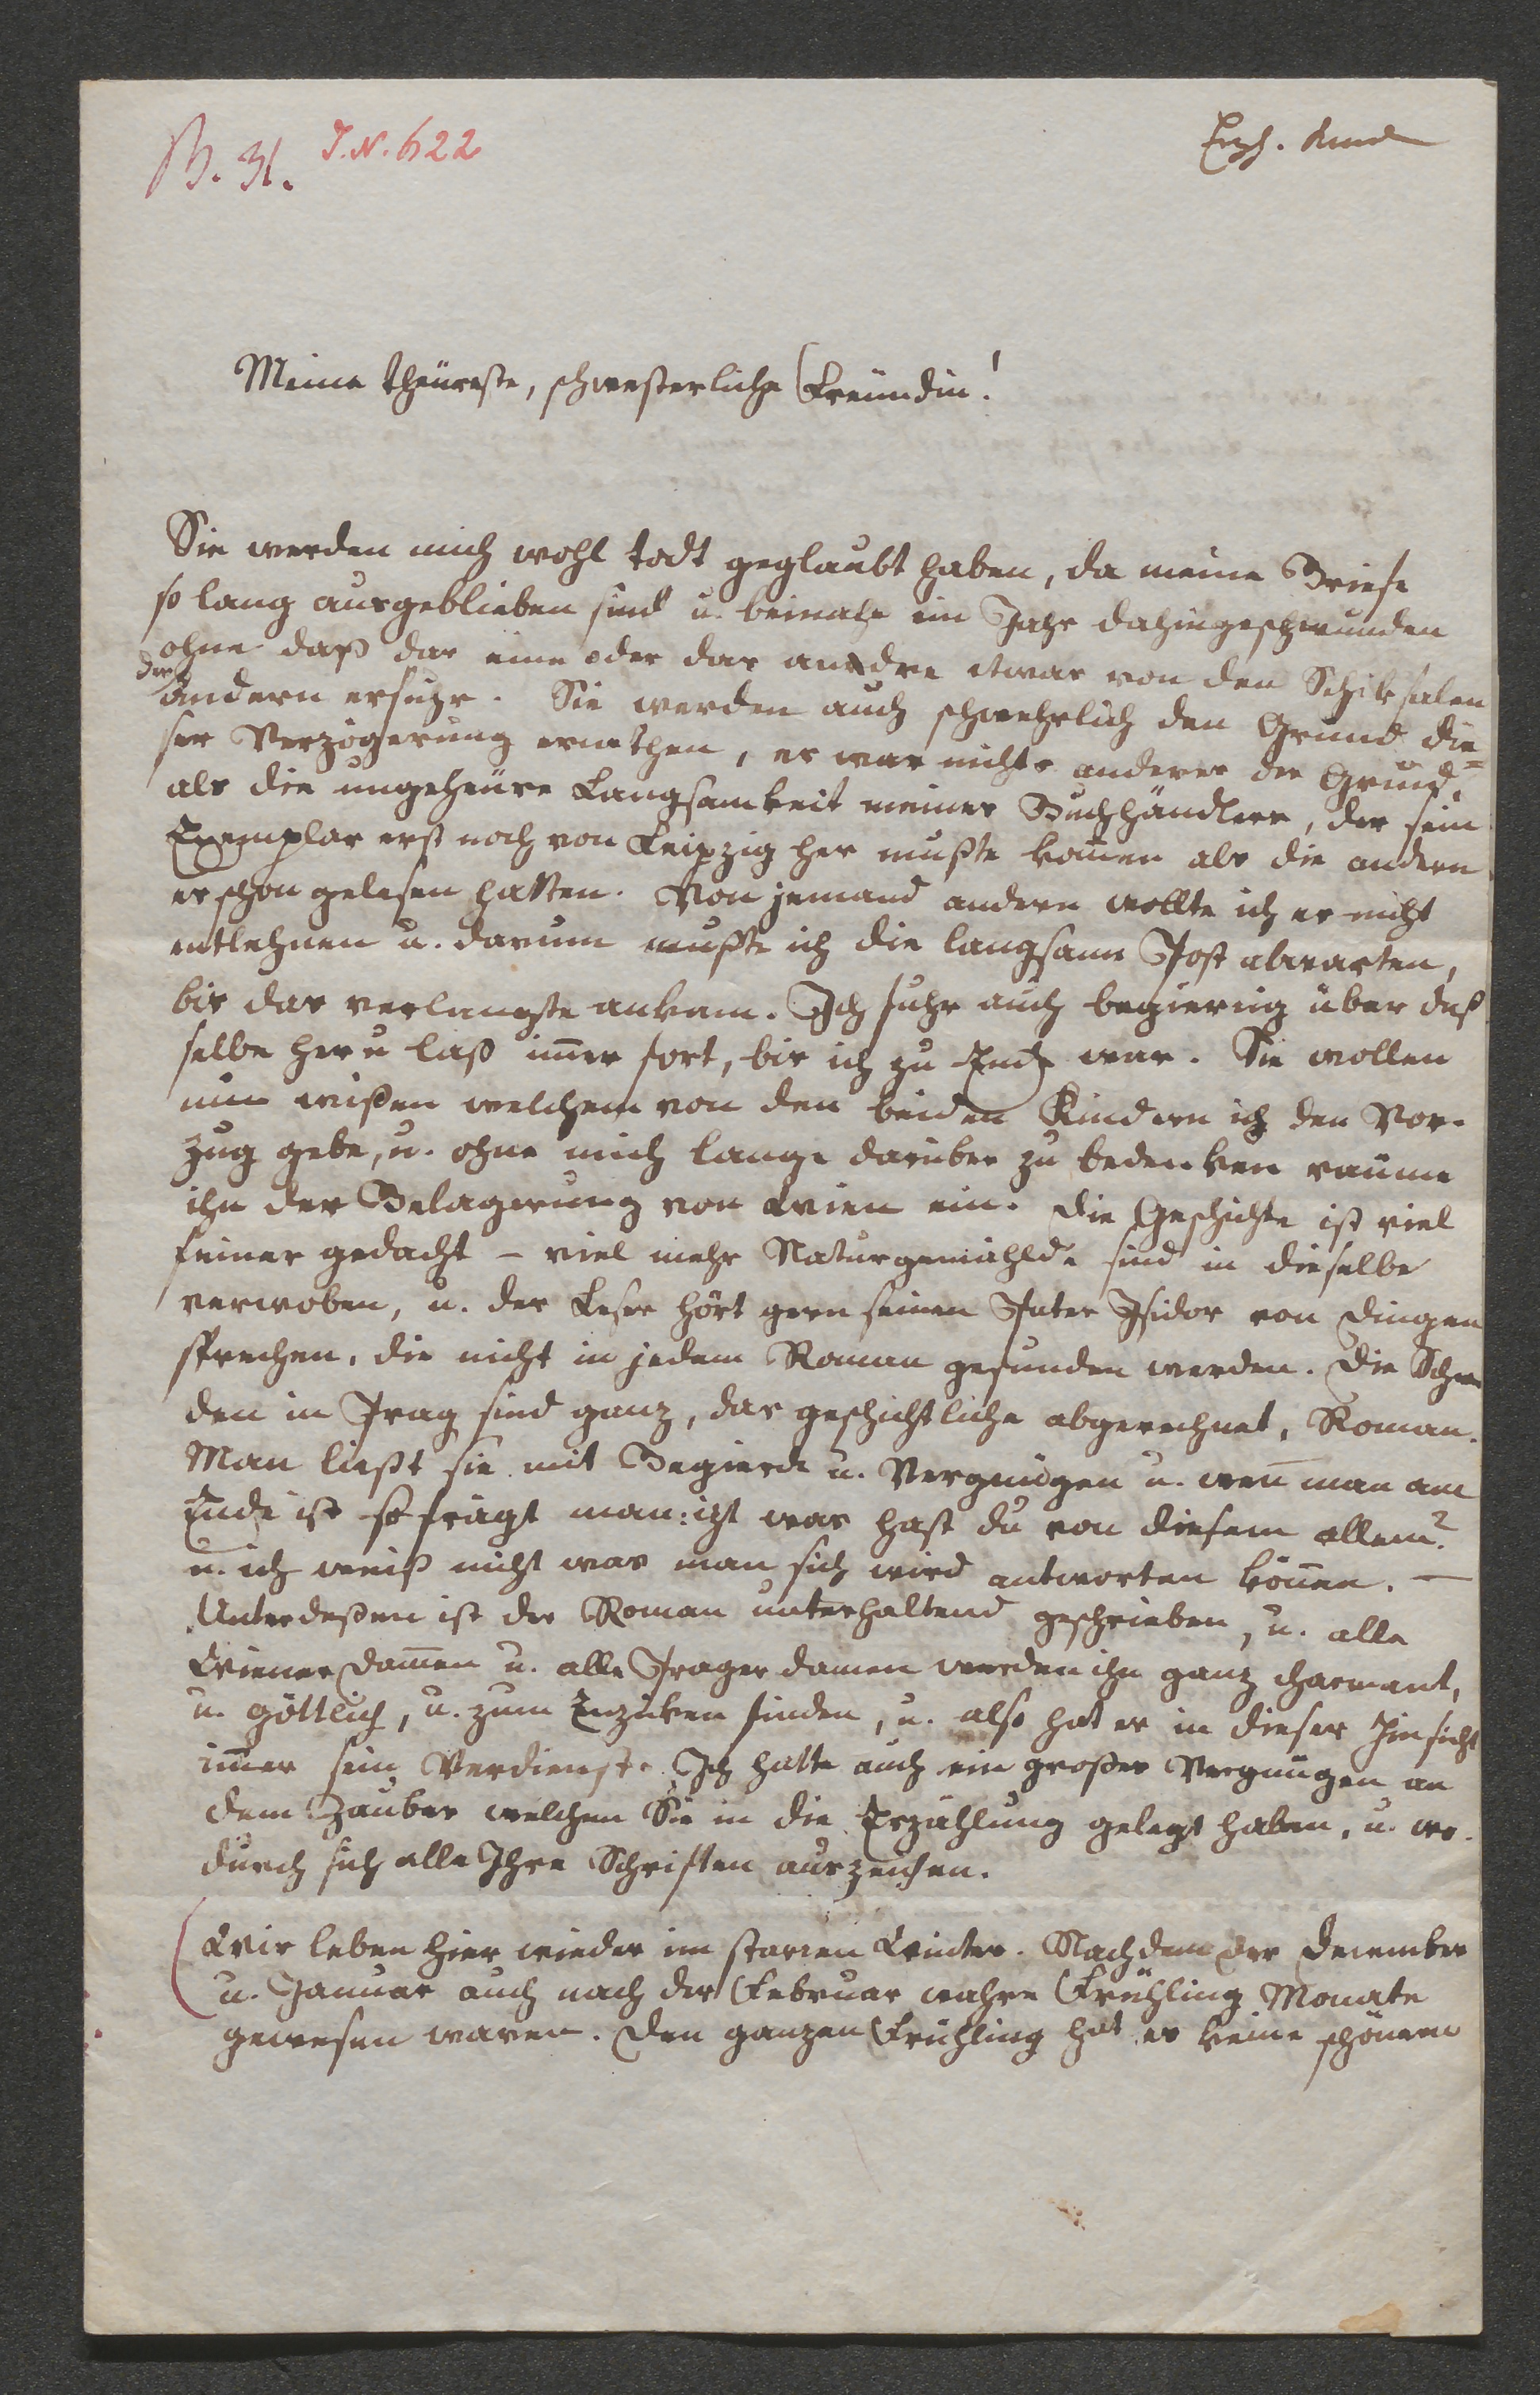 B. 31. I.N. 622
Meine theüreste, schwesterliche Freündin!
Sie werden mich wohl todt geglaubt haben, da meine Briefe
so lang ausgeblieben sind u. beinahe ein Jahr dahingeschwunden
ohne daß das eine oder das andre etwas von den Schiksalen
des andern erfuhr. Sie werden auch schwehrlich den Grund die=
ser Verzögerung errathen, es war nichts anderes der Grund,
als die ungeheüre Langsamkeit meines Buchhändlers, der sein
Exemplar erst noch von Leipzig her mußte kom̅en als die andern
es schon gelesen hatten. Von jemand andern wollte ich es nicht
entlehnen u. darum mußte ich die langsame Post abwarten,
bis das verlangte ankam. Ich fuhr auch begierig über das
selbe her u laß im̅er fort, bis ich zu Ende war. Sie wollen
nun wißen welchem von den beiden Kindern ich den Vor-
zug gebe, u. ohne mich lange darüber zu bedenken räume
ihn der Belagerung von Wien ein. Die Geschichte ist viel
feiner gedacht – viel mehr Naturgemählde sind in dieselbe
verwoben, u. der Leser hört gern seinen Pater Isidor von Dingen
sprechen, die nicht in jedem Roman gefunden werden. Die Schwe
den in Prag sind ganz, das geschichtliche abgerechnet, Roman.
Man ließt sie mit Begierde u. Vergnügen u. wen̅ man am
Ende ist so frägt man: izt was hast du von diesem allem?
u. ich weiß nicht was man sich wird antworten kön̅en. —
Unterdeßen ist der Roman unterhaltend geschrieben, u. alle
Wiener Dam̅en u. alle Prager Damen werden ihn ganz charmant,
u. göttlich, u. zum Enzüken finden, u. also hat er in dieser Hinsicht
im̅er sein Verdienst. Ich hatte auch ein großes Vergnügen an
dem Zauber welchen Sie in die Erzählung gelegt haben, u. wo-
durch sich alle Ihre Schriften auszeichen.
Wir leben hier wieder im starren Winter. Nachdem der December
u. Januar auch nach der Februar wahre Frühling Monate
gewesen waren. Den ganzen Frühling hat es keine schönern